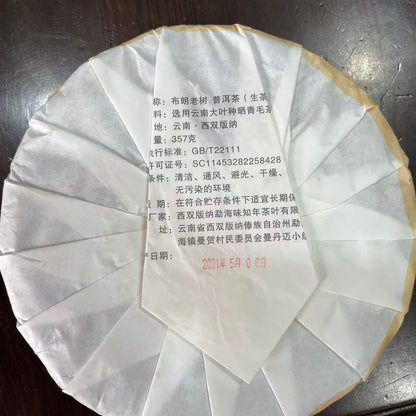 称：布朗老树 普洱茶（生茶
料：选用云南大叶种晒青毛茶
地：云南·西双版纳
量：357克
执行标准：GB/T22111
许可证号：SC11453282258428
条件：清洁、通风、避光、干燥、
无污染的环境
质 期：在符合贮存条件下适宜长期保
厂家：西双版纳勐海味知年茶叶有限
址：云南省西双版纳傣族自治州勐
海镇曼贺村民委员会曼丹迈小组
产日期：
2021年5月06日